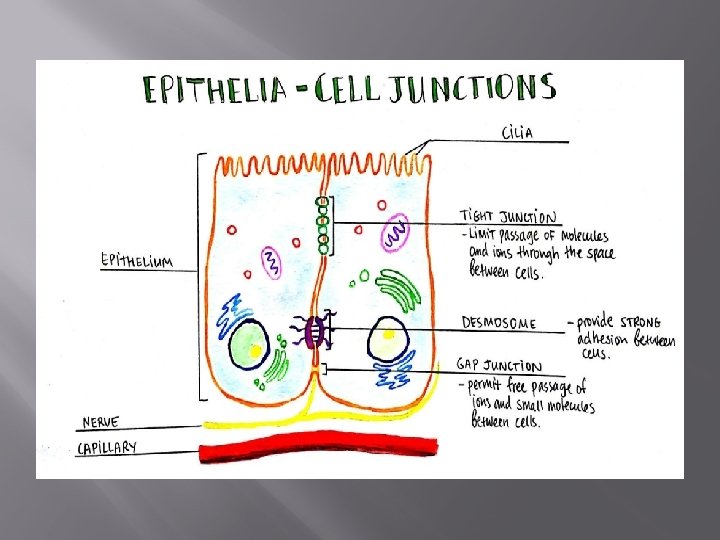 EPITHELIA - CELL JUNCTIONS
CILIA
TIGHT JUNCTION
- LIMIT PASSAGE OF MOLECULES
and ions through the space
between cells.
EPITHELIUM
DESMOSOME
- provide STRONG
adhesion between
cells.
GAP JUNCTION
- permit free passage of
ions and small molecules
between cells.
NERVE
CAPILLARY